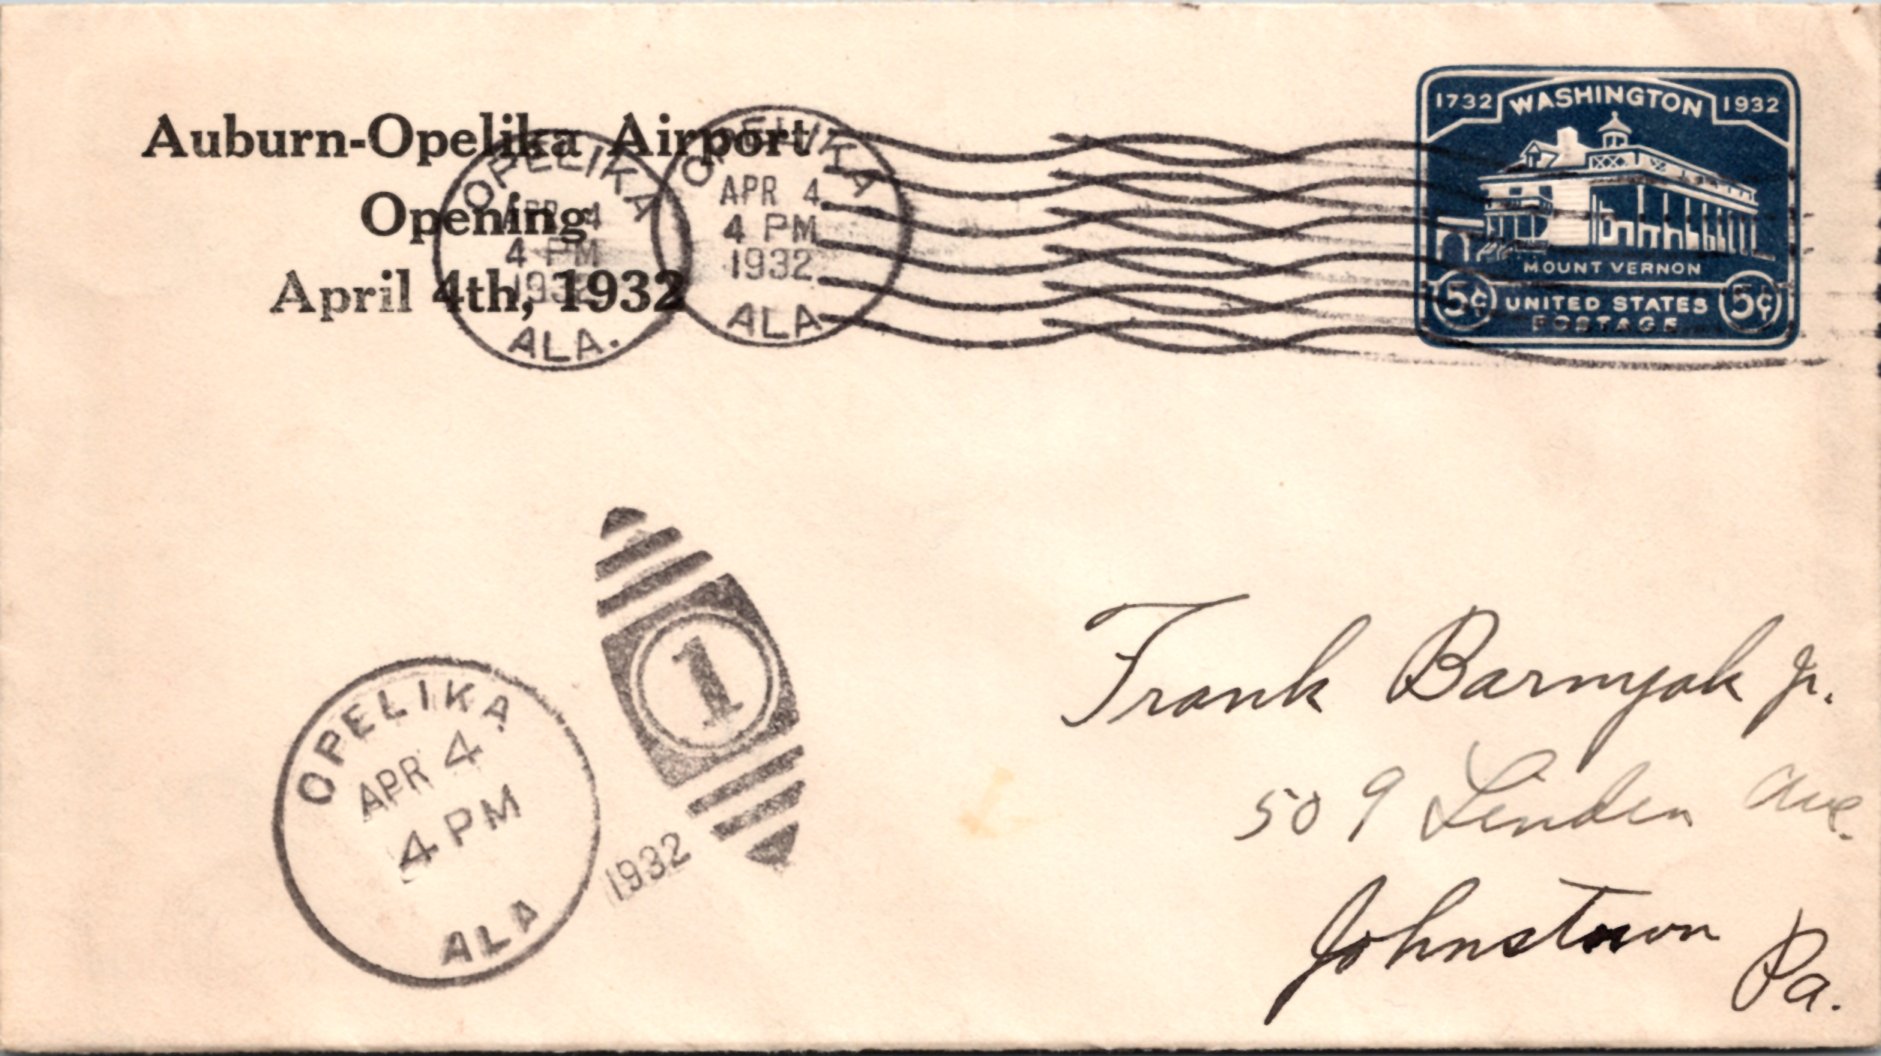 Auburn-Opelika Airport
Opening
April 4th, 1932
OPELIKA
APR 4
4 PM
1932
ALA.
OPELIKA
APR 4
4 PM
1932
ALA
1732 WASHINGTON 1932
MOUNT VERNON
5¢ UNITED STATES 5¢
POSTAGE
OPELIKA
APR 4
4 PM
ALA
1
1932
Frank Barnyak Jr.
509 Linden Ave.
Johnstown
Pa.